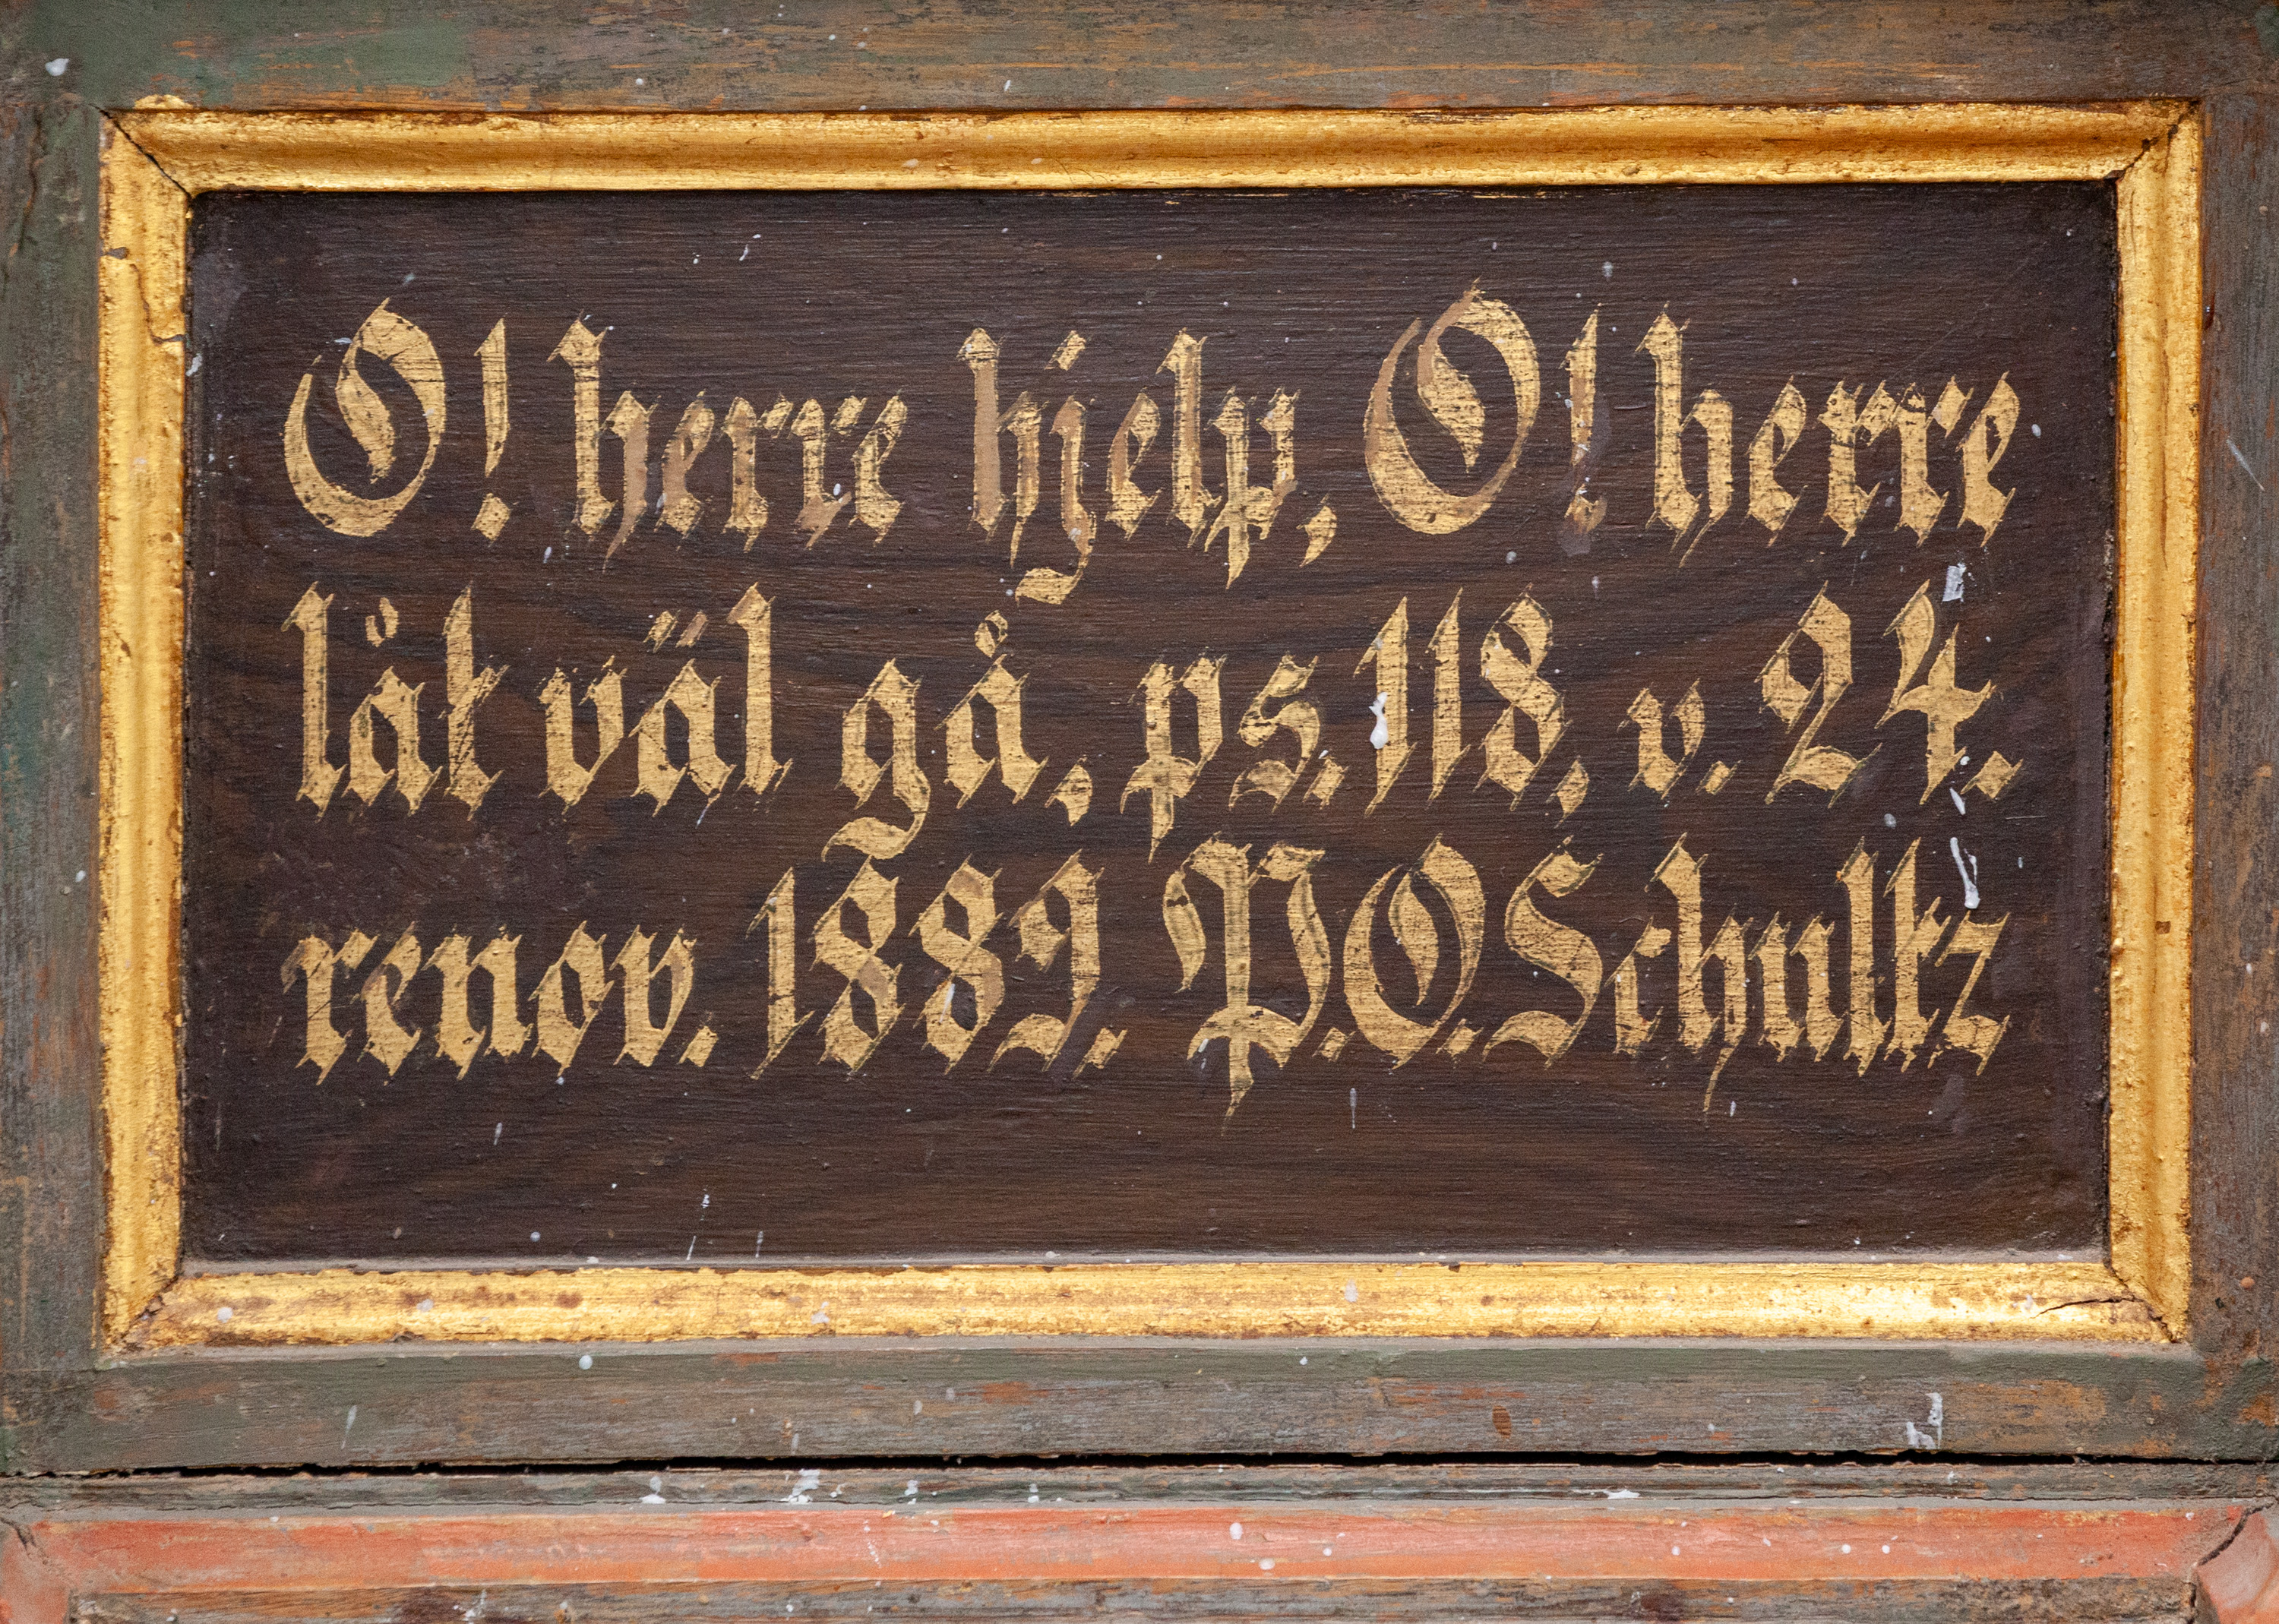 O! herre hjelp, O! herre
låt väl gå, ps. 118, v. 24.
renov. 1889. P. O. Schultz